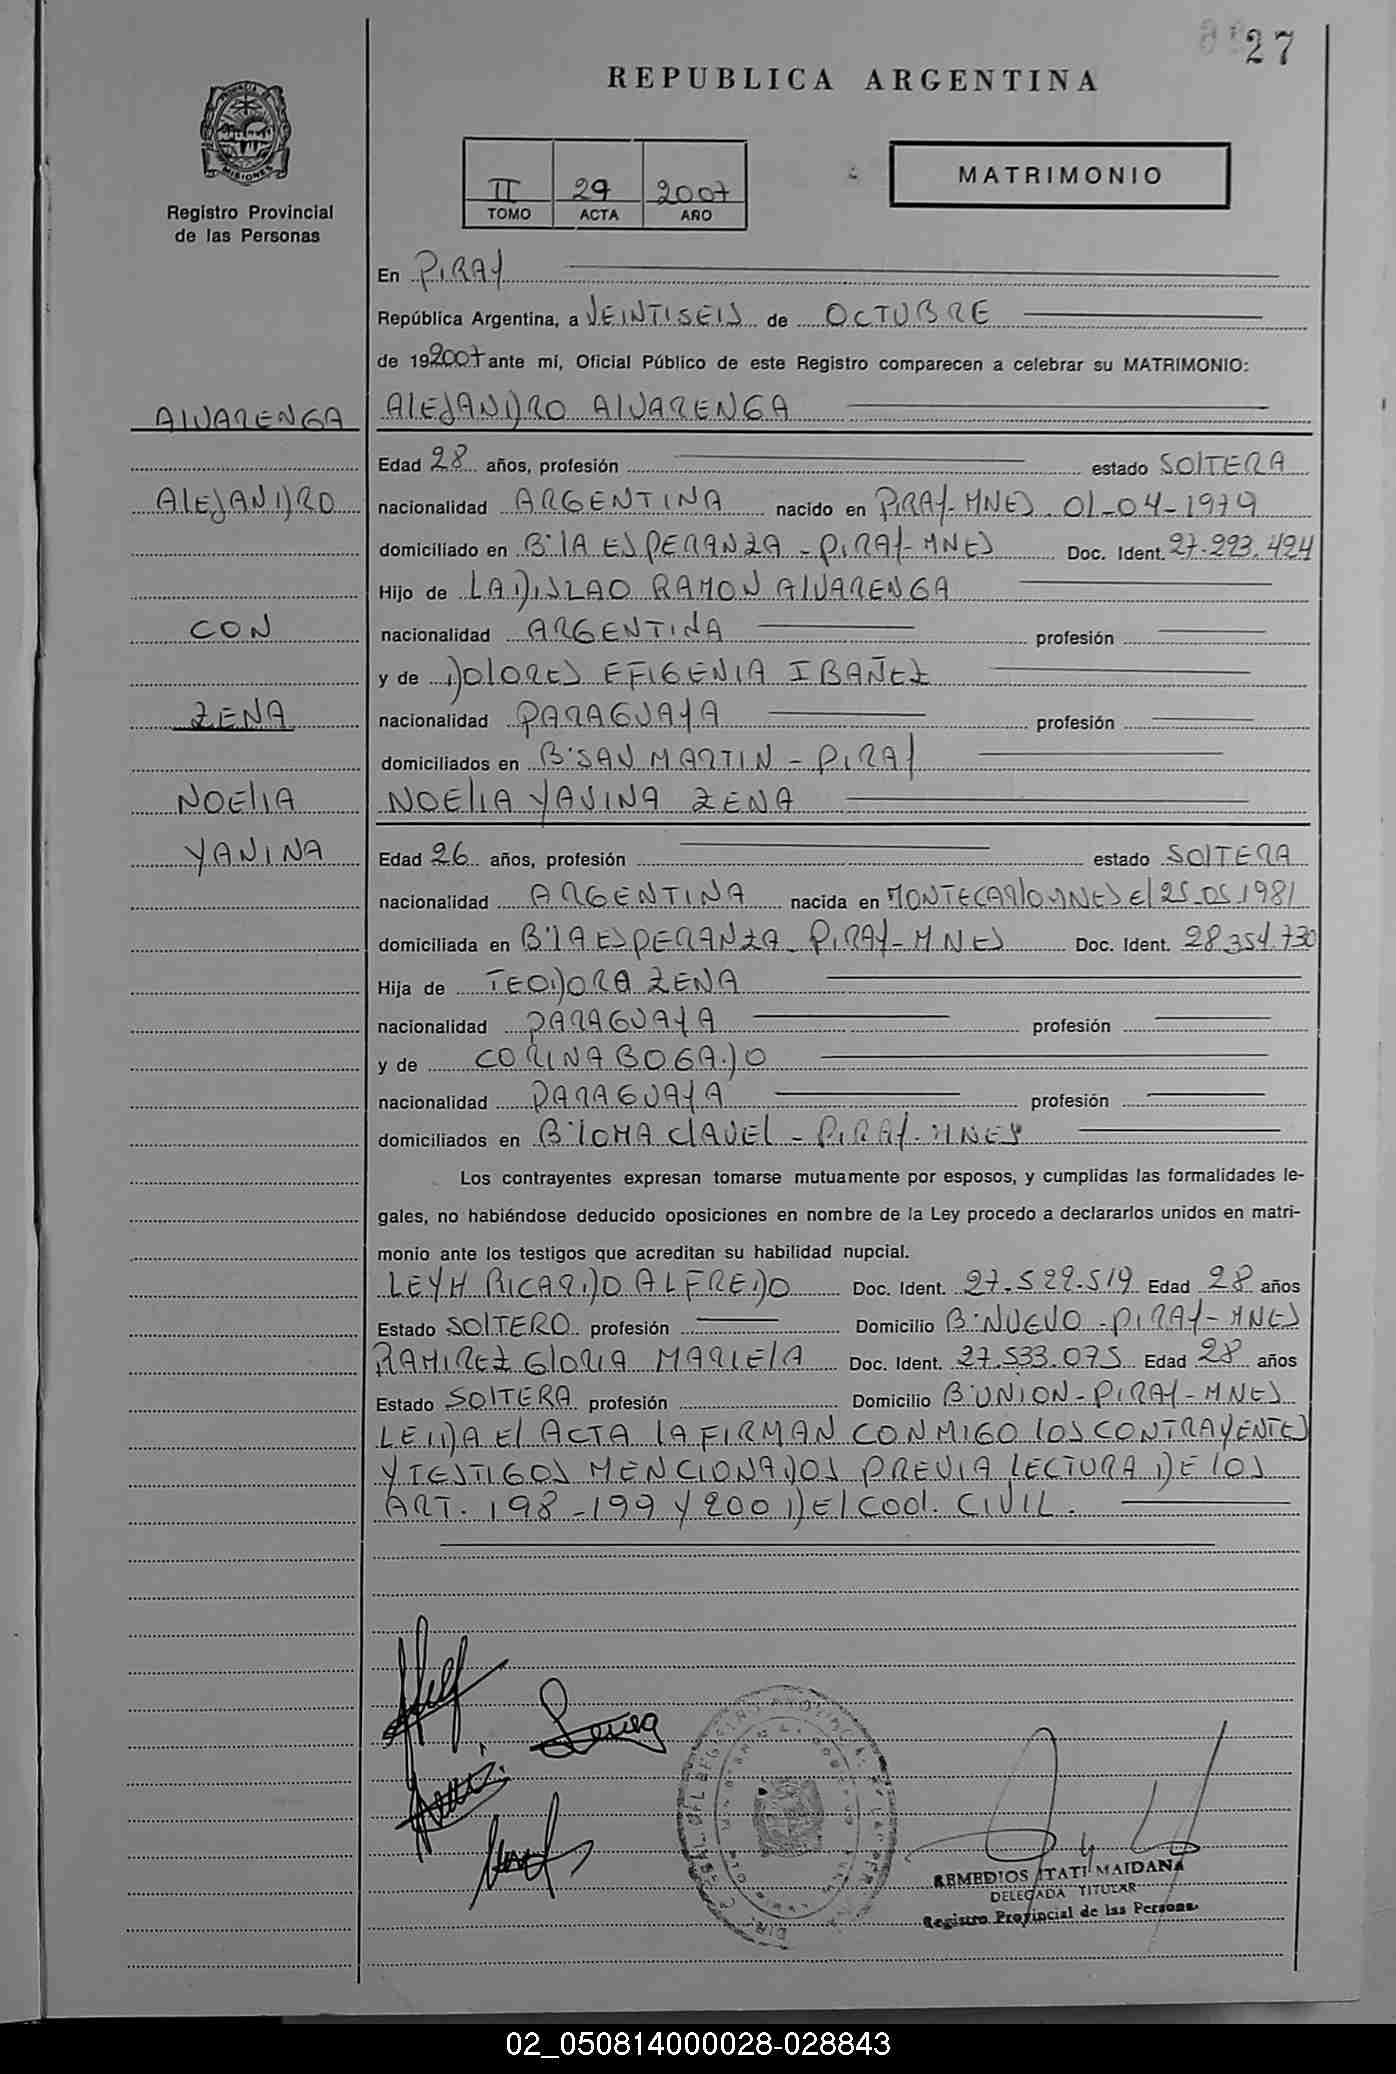 27
REPUBLICA ARGENTINA
PROVINCIA DE MISIONES
Registro Provincial
de las Personas
II 29 2007
TOMO ACTA AÑO
MATRIMONIO
En PIRAY
República Argentina, a VEINTISEIS de OCTUBRE
de 192007 ante mí, Oficial Público de este Registro comparecen a celebrar su MATRIMONIO:
ALVARENGA ALEJANDRO ALVARENGA
Edad 28 años, profesión estado SOLTERA
ALEJANDRO nacionalidad ARGENTINA nacido en PIRAY-MNES. 01-04-1979
domiciliado en B·LA ESPERANZA - PIRAY-MNES Doc. Ident. 27.223.424
Hijo de LADISLAO RAMON ALVARENGA
CON nacionalidad ARGENTINA profesión
y de DOLORES EFIGENIA IBAÑEZ
ZENA nacionalidad PARAGUAYA profesión
domiciliados en B·SAN MARTIN - PIRAY
NOELIA NOELIA YANINA ZENA
YANINA Edad 26 años, profesión estado SOLTERA
nacionalidad ARGENTINA nacida en MONTECARLO-MNES El 25-05-1981
domiciliada en B·LA ESPERANZA - PIRAY-MNES Doc. Ident. 28.354.730
Hija de TEODORA ZENA
nacionalidad PARAGUAYA profesión
y de CORINA BOGADO
nacionalidad PARAGUAYA profesión
domiciliados en B·LOMA CLAVEL - PIRAY-MNES
Los contrayentes expresan tomarse mutuamente por esposos, y cumplidas las formalidades le-
gales, no habiéndose deducido oposiciones en nombre de la Ley procedo a declararlos unidos en matri-
monio ante los testigos que acreditan su habilidad nupcial.
LEYH RICARDO ALFREDO Doc. Ident. 27.522.519 Edad 28 años
Estado SOLTERO profesión Domicilio B·NUEVO - PIRAY-MNES
RAMIREZ GLORIA MARIELA Doc. Ident. 27.533.075 Edad 28 años
Estado SOLTERA profesión Domicilio B·UNION - PIRAY-MNES
LEIDA El ACTA LA FIRMAN CONMIGO LOS CONTRAYENTES
Y TESTIGOS MENCIONADOS PREVIA LECTURA DE LOS
ART. 198-199 Y 200 DEl COOL. CIVIL.
REMEDIOS ITATI MAIDANA
DELEGADA TITULAR
Registro Provincial de las Personas
02_050814000028-028843